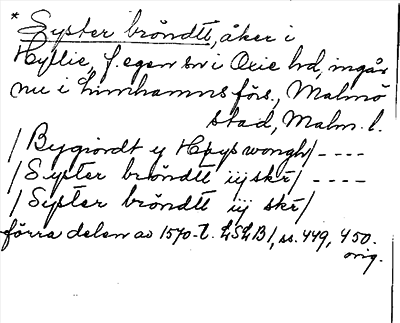 * Syster bröndtt, åker i
Hyllie, f. egen sn i Oxie hd, ingår
nu i Limhamns förs., Malmö
stad, Malm. l.
/ Bygiordt y Høys wongh/ ----
/ Syster bröndtt iij skr/ ----
/ Syster bröndtt iij skr/
förra delen av 1570-t. LSLB1, ss. 449, 450.
orig.